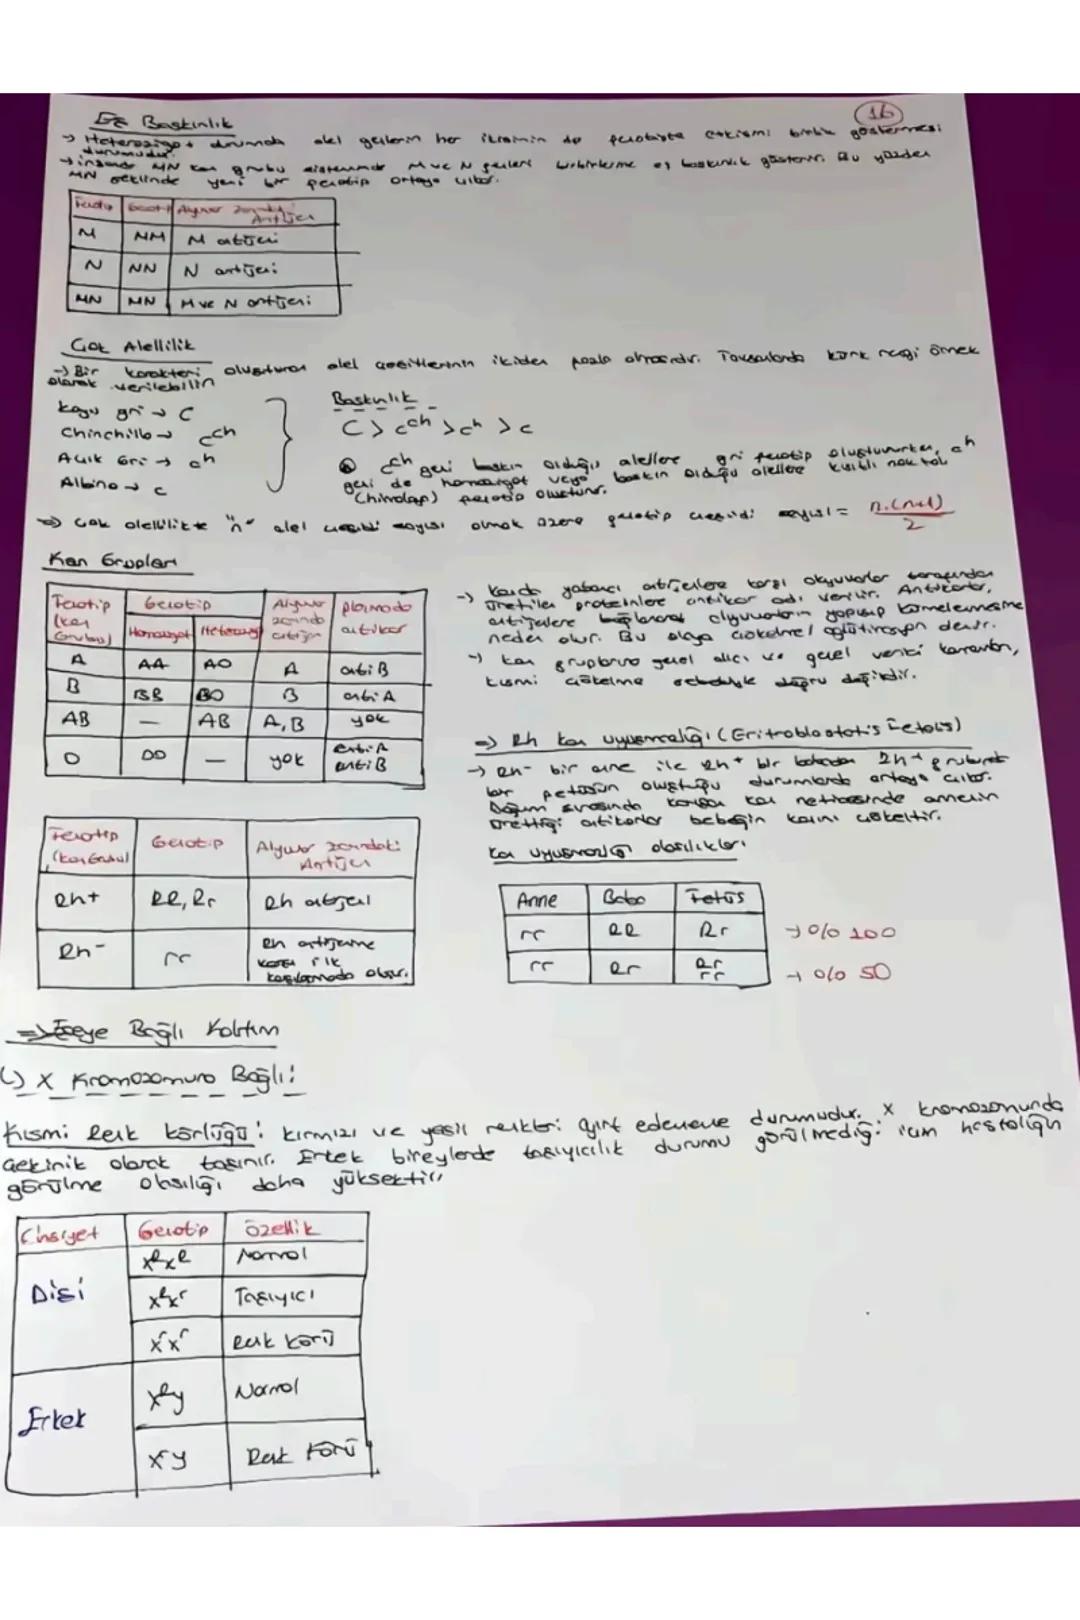 Eş Baskınlık
16
→ Heterozigot durumda alel genlerin her ikisinin de fenotipte etkisini birlikte göstermesi
durumudur.
→ insanda MN kan grubu sisteminde M ve N genleri birbirlerine eş baskınlık gösterir. Bu yüzden
MN şeklinde yeni bir fenotip ortaya çıkar.
Fenotip Genotip Alyuvar zarındaki Antijen
M MM M antijeni
N NN N antijeni
MN MN M ve N antijeni
Çok Alellilik
→ Bir karakteri oluşturan alel çeşitlerinin ikiden fazla olmasıdır. Tavşanlarda kürk rengi örnek
olarak verilebilir
Koyu gri → C
Chinchilla → cch
Açık Gri → ch
Albino → c
Baskınlık
C > cch > ch > c
cch geni baskın olduğu alellere gri fenotip oluştururken, ch
geni de homozigot veya baskın olduğu alellere
fenotip oluşturur.
⇒ Çok alellilikte "n" alel çeşidi sayısı olmak üzere genotip çeşidi sayısı = n.(n+1) / 2
Kan Grupları
Fenotip (kan Grubu) Genotip Homozigot Heterozigot Alyuvar zarında antijen plazmada antikor
A AA AO A anti B
B BB BO B anti A
AB — AB A,B yok
O OO — yok anti A anti B
→ Kanda yabancı antijenlere karşı akyuvarlar tarafından
üretilen proteinlere antikor adı verilir. Antikorlar,
antijenlere bağlanarak alyuvarların yapışıp kümelenmesine
neden olur. Bu olaya çökelme/aglütinasyon denir.
→ kan gruplarına genel alıcı ve genel verici kavramları,
kısmi çökelme sebebiyle doğru değildir.
⇒ Rh kan uyuşmazlığı (Eritroblastotis Fetalis)
→ Rh- bir anne ile Rh+ bir babadan Rh+ grubunda
bir fetüsün oluştuğu durumlarda ortaya çıkar.
Doğum sırasında karışan kan neticesinde annenin
ürettiği antikorlar bebeğin kanını çökeltir.
Kan uyuşmazlığı olasılıkları
Fenotip (kan Grubu) Genotip Alyuvar zarındaki Antijen
Rh+ RR, Rr Rh antijeni
Rh- rr Rh antijenine karşı ilk karşılaşmada oluşur.
Anne Baba Fetüs
rr RR Rr → %100
rr Rr Rr rr → %50
⇒ Eşeye Bağlı Kalıtım
↳ X Kromozomuna Bağlı:
Kısmi Renk körlüğü: kırmızı ve yeşil renkleri ayırt edememe durumudur. X kromozomunda
çekinik olarak taşınır. Erkek bireylerde taşıyıcılık durumu görülmediği için hastalığın
görülme olasılığı daha yüksektir.
Cinsiyet Genotip Özellik
Dişi XRXR Normal
XRXr Taşıyıcı
XrXr Renk körü
Erkek XRy Normal
Xry Renk körü